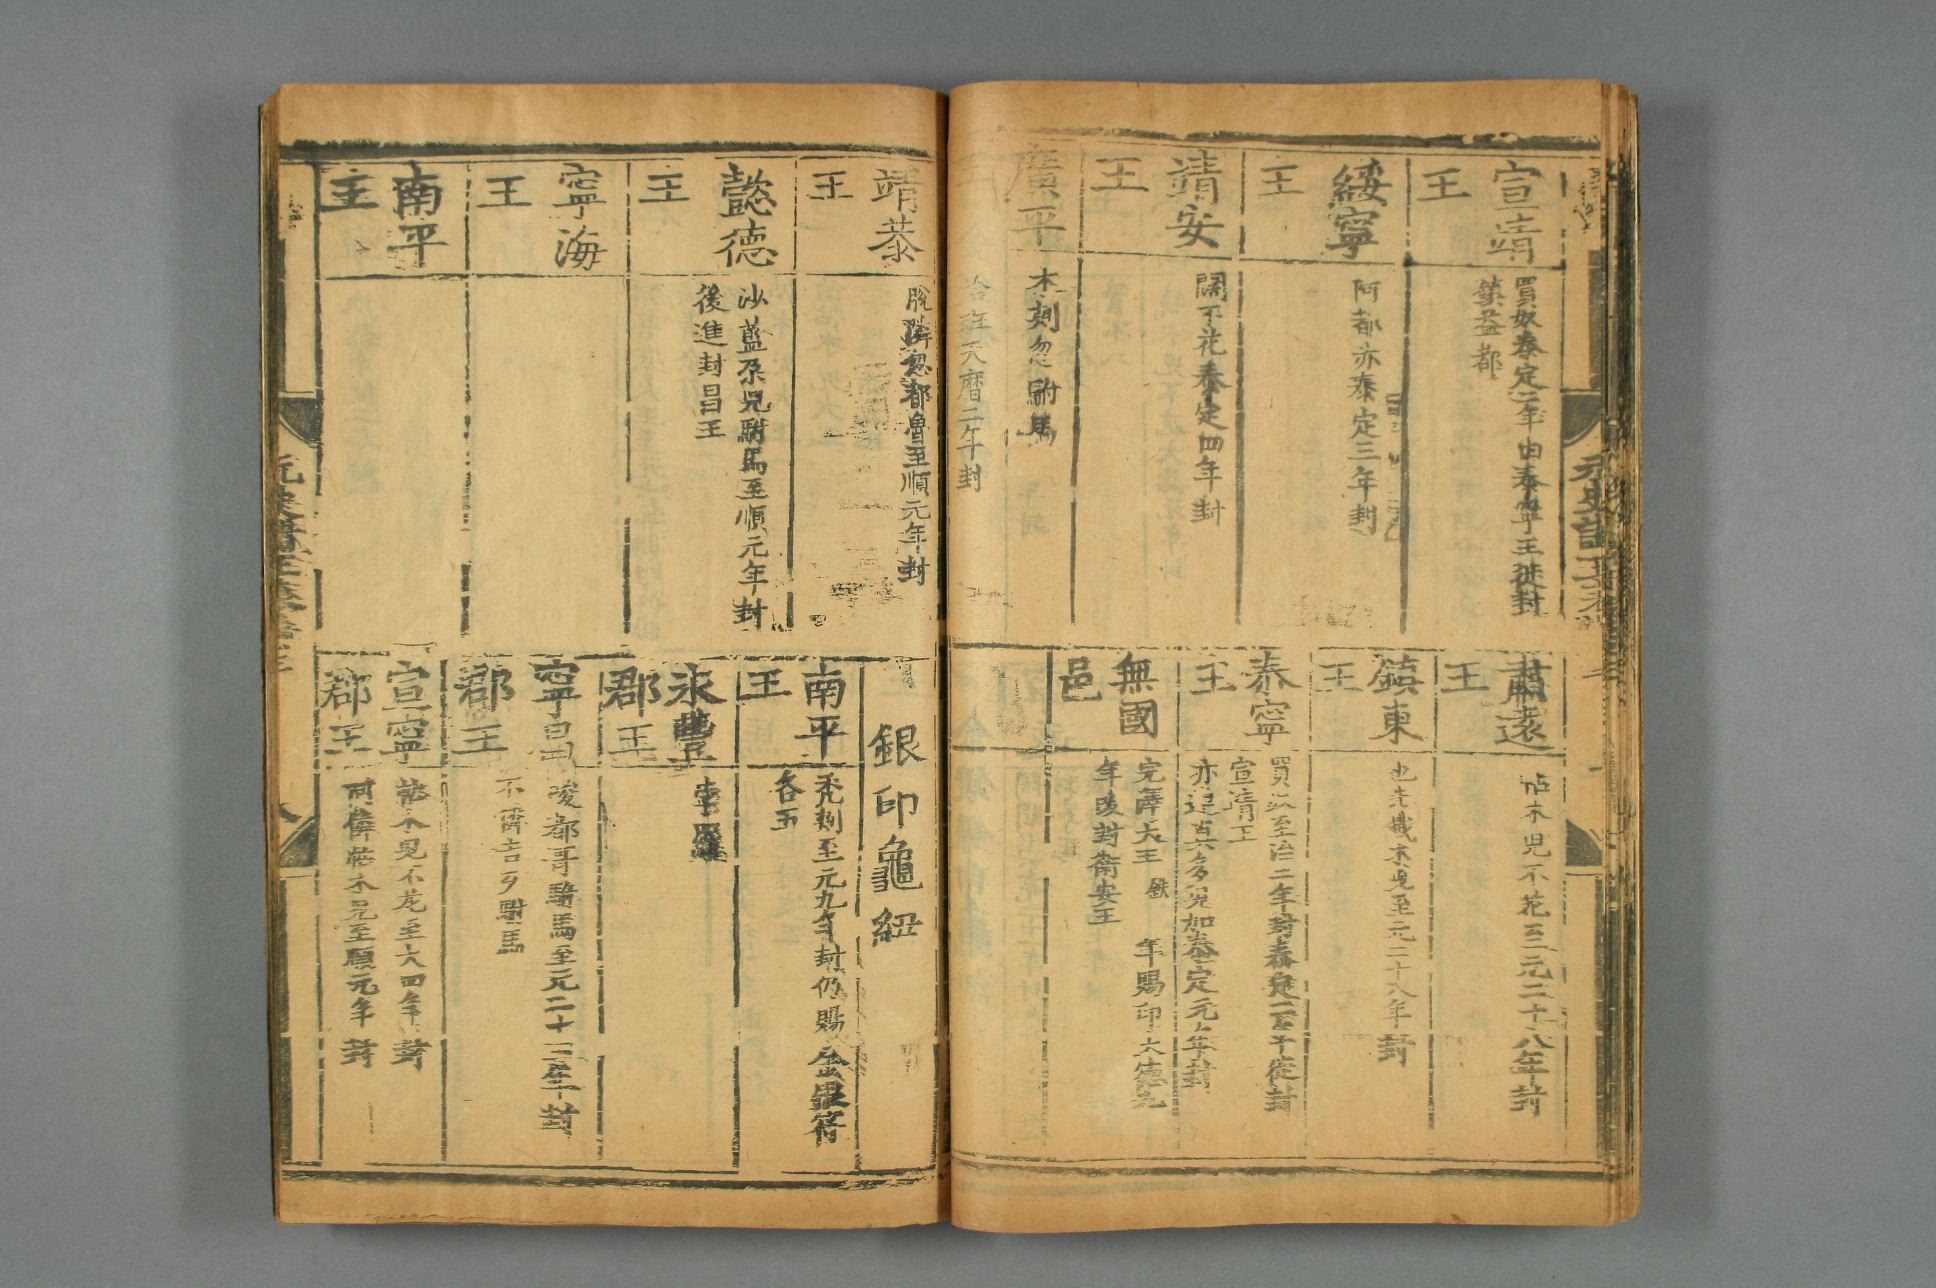 宣靖
王
買奴泰定二年由泰寧王徙封
益都
綏寧
王
阿都赤泰定三年封
靖安
王
闊不花泰定四年封
廣平
王
木剌忽駙馬
哈班天曆二年封
肅遠
王
帖木兒不花至元二十八年封
鎮東
王
也先鐵木兒至元二十八年封
泰寧
王
買奴至治二年封泰定二年徙封
宣靖王
亦連真多兒加泰定元年封
無國
邑
完澤大王
年賜印大德九
年改封衛安王
靖恭
王
脫隣忽都魯至順元年封
懿德
王
沙藍朶兒駙馬至順元年封
後進封昌王
寧海
王
南平
王
銀印龜紐
南平
王
禿剌至元九年封仍賜金銀符
各五
永豐
郡王
孛羅
寧昌
郡王
唆都哥駙馬至元二十二年封
不憐吉歹駙馬
宣寧
郡王
帖木兒不花至大四年封
阿憐帖木兒至順元年封